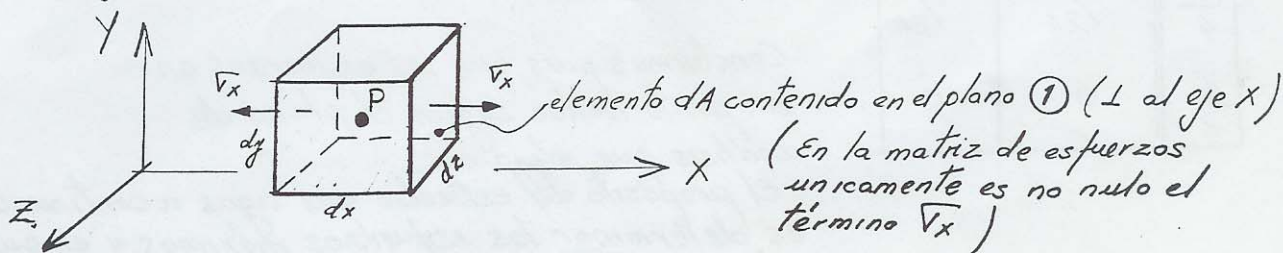 Y
σx
σx
P
elemento dA contenido en el plano ① (⊥ al eje X)
dy
dz
X
(En la matriz de esfuerzos
unicamente es no nulo el
dx
término σx)
Z